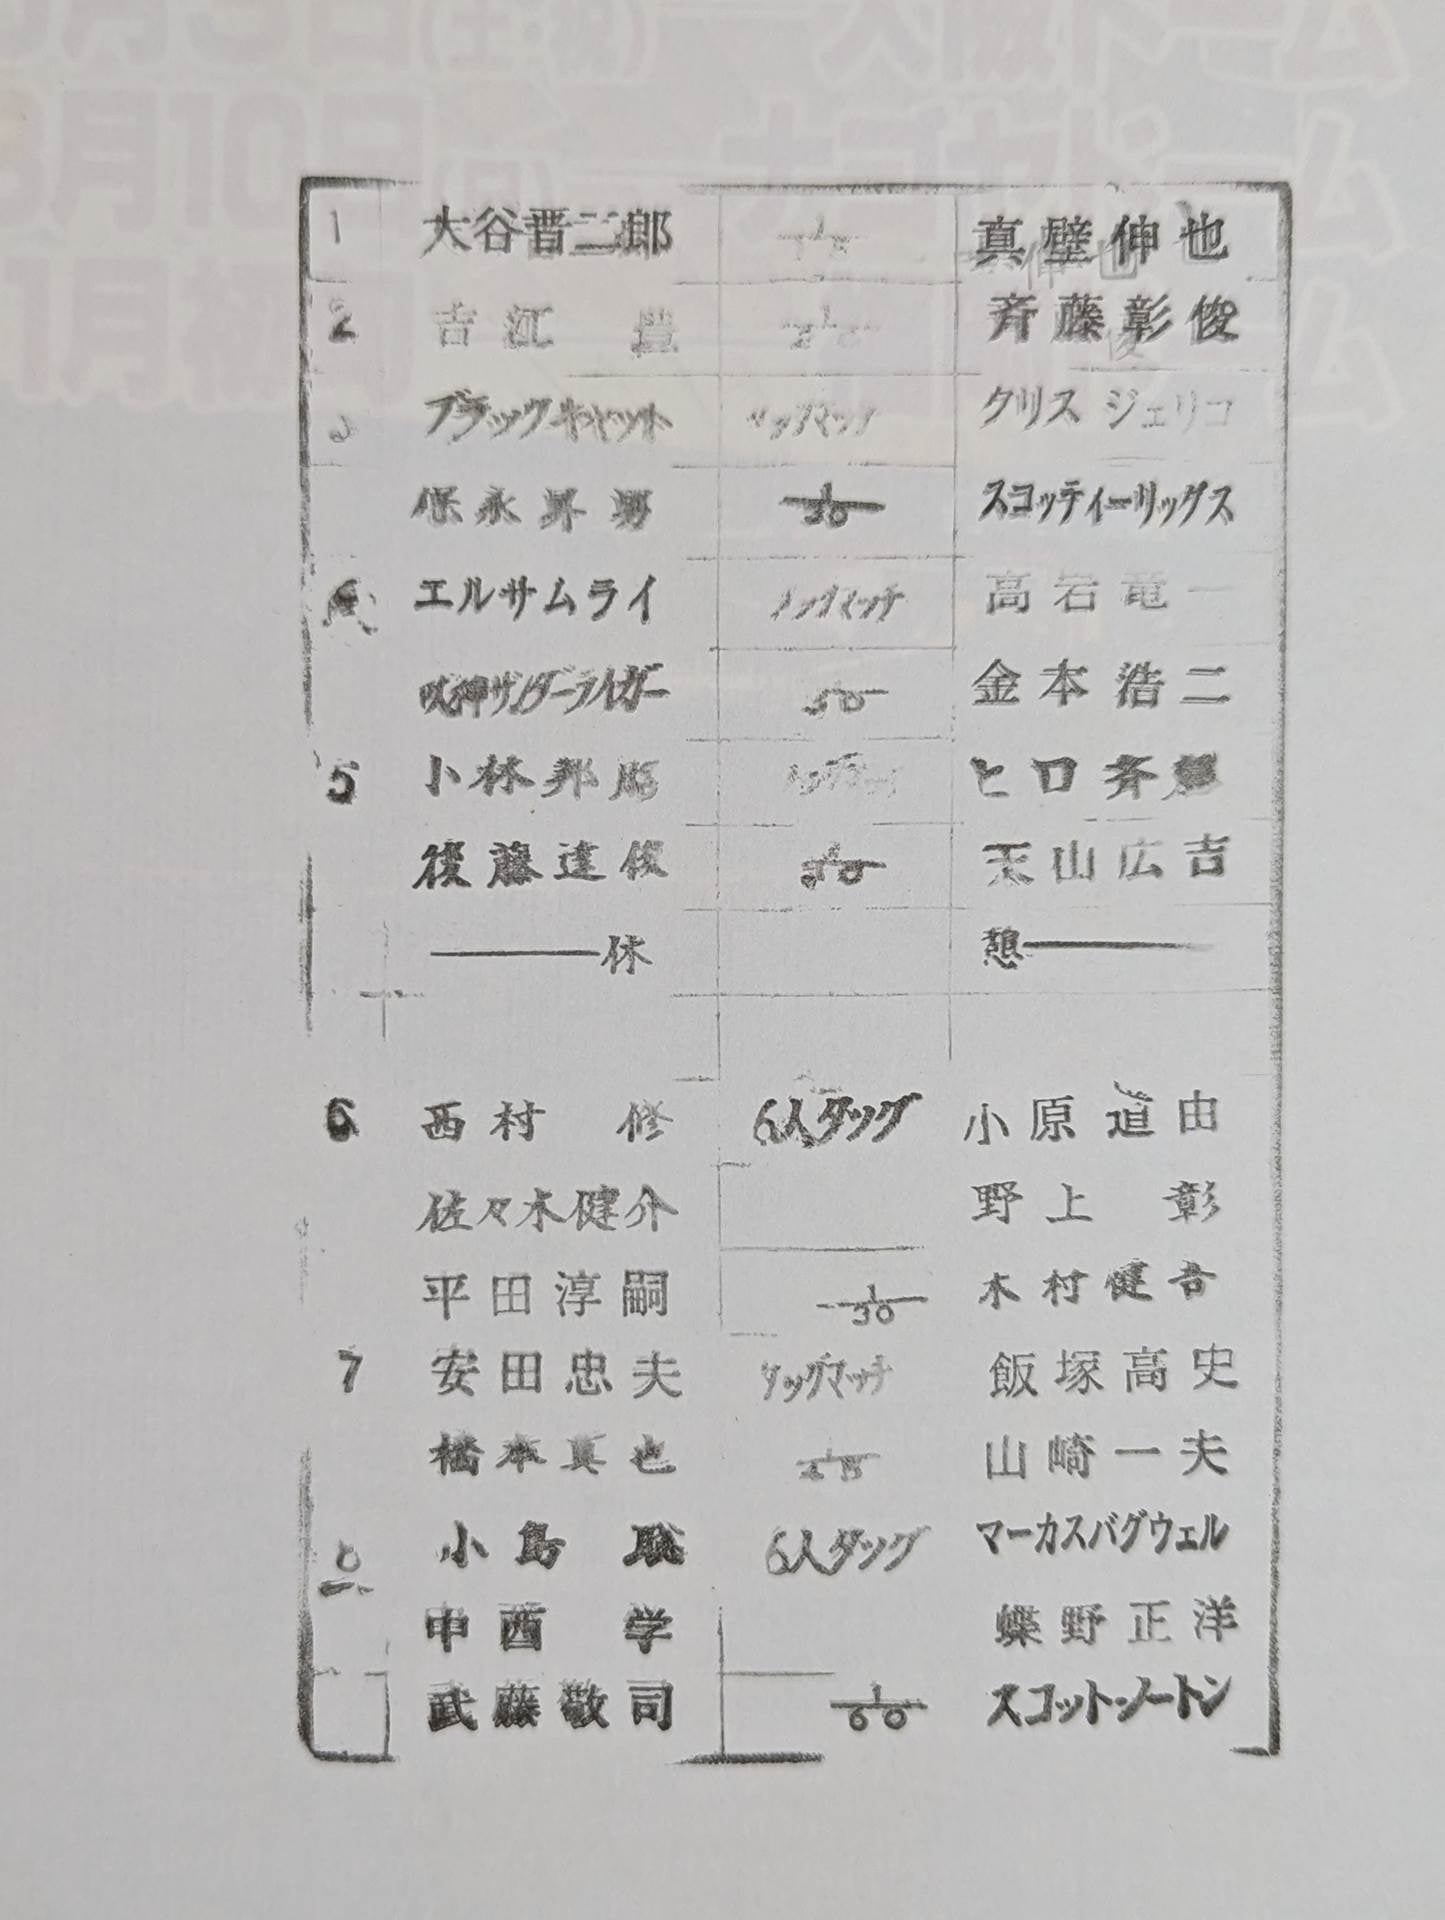 1 大谷晋二郎 1/15 真壁伸也
2 吉江 豊 斉藤彰俊
ブラックキャット タッグマッチ クリス ジェリコ
保永昇男 1/30 スコッティーリッグス
エルサムライ タッグマッチ 高岩竜一
獣神サンダーライガー 30 金本浩二
5 小林邦昭 タッグマッチ ヒロ斉藤
後藤達俊 1/30 天山広吉
休 憩
6 西村 修 6人タッグ 小原道由
佐々木健介 野上 彰
平田淳嗣 1/30 木村健吾
7 安田忠夫 タッグマッチ 飯塚高史
橋本真也 1/45 山崎一夫
小島 聡 6人タッグ マーカスバグウェル
中西 学 蝶野正洋
武藤敬司 1/60 スコットノートン